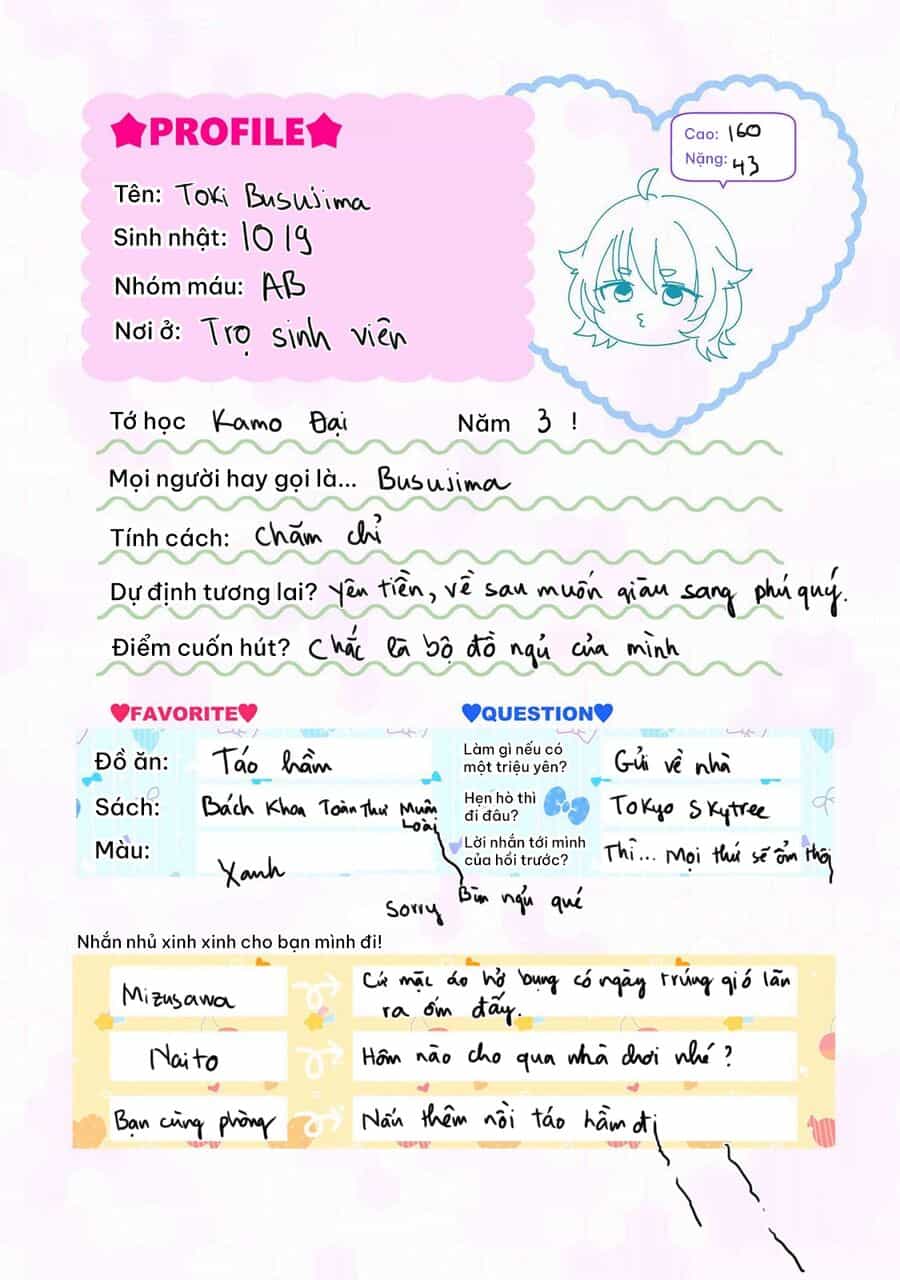 ★PROFILE★
Cao: 160
Nặng: 43
Tên: Toki Busujima
Sinh nhật: 1019
Nhóm máu: AB
Nơi ở: Trọ sinh viên
Tớ học Kamo Đại Năm 3 !
Mọi người hay gọi là... Busujima
Tính cách: Chăm chỉ
Dự định tương lai? Yên tiền, về sau muốn giàu sang phú quý.
Điểm cuốn hút? Chắc là bộ đồ ngủ của mình
♥FAVORITE♥
Đồ ăn: Táo hầm
Sách: Bách Khoa Toàn Thư Muôn
Loài
Màu: Xanh
♥QUESTION♥
Làm gì nếu có
một triệu yên? Gửi về nhà
Hẹn hò thì
đi đâu? Tokyo Skytree
Lời nhắn tới mình
của hồi trước? Thì... Mọi thứ sẽ ổn thôi
Sorry Bùn ngủ qué
Nhắn nhủ xinh xinh cho bạn mình đi!
Mizusawa Cứ mặc áo hở bụng có ngày trúng gió lăn
ra ốm đấy.
Naito Hôm nào cho qua nhà chơi nhé?
Bạn cùng phòng Nấu thêm nồi táo hầm đi